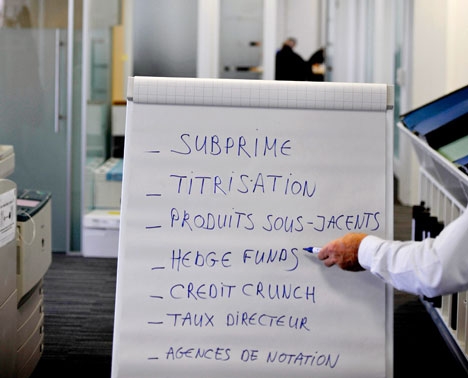 _ SUBPRIME
_ TITRISATION
_ PRODUITS SOUS-JACENTS
_ HEDGE FUNDS
_ CREDIT CRUNCH
_ TAUX DIRECTEUR
_ AGENCES DE NOTATION